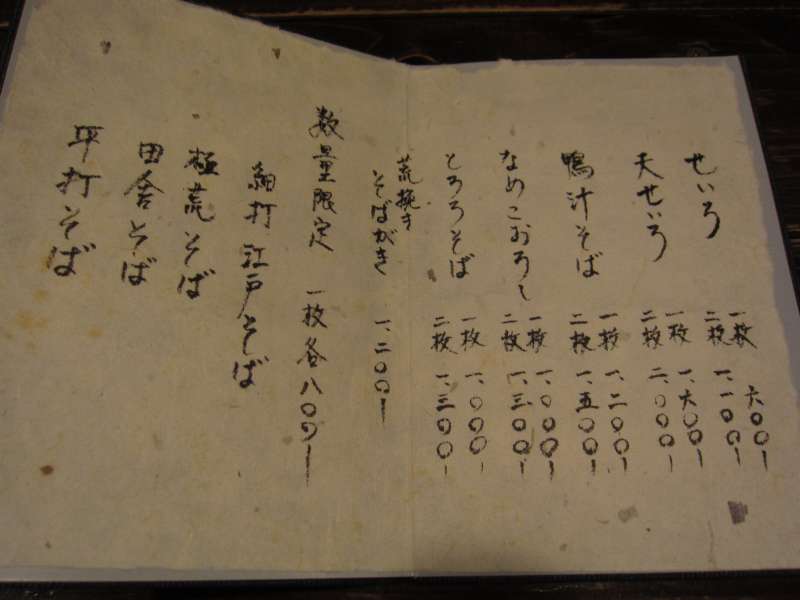 せいろ 一枚 六〇〇ー
二枚 一、一〇〇ー
天せいろ 一枚 一、六〇〇ー
二枚 二、〇〇〇ー
鴨汁そば 一枚 一、二〇〇ー
二枚 一、五〇〇ー
なめこおろし 一枚 一、〇〇〇ー
二枚 一、三〇〇ー
とろろそば 一枚 一、〇〇〇ー
二枚 一、三〇〇ー
荒挽き
そばがき 一、二〇〇ー
数量限定 一枚各八〇〇ー
細打 江戸そば
極荒そば
田舎そば
平打そば